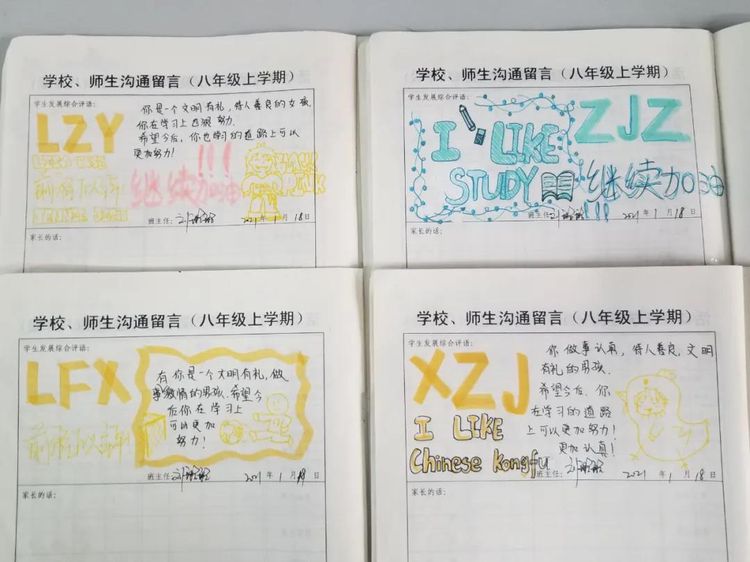 学校、师生沟通留言（八年级上学期）
学生发展综合评语：
LZY
你是一个文明有礼，待人善良的女孩
你在学习上也很努力.
希望今后，你也学习的道路上可以
更加努力！
继续加油!!!
班主任：
2021年1月18日
家长的话：
学校、师生沟通留言（八年级上学期）
学生发展综合评语：
I LIKE
STUDY
ZJZ
继续加油!!!
班主任：
2021年1月18日
家长的话：
学校、师生沟通留言（八年级上学期）
学生发展综合评语：
LFX
有你是一个文明有礼，做
事激情的男孩.希望今
后你在学习上
可以更加
努力！
班主任：
2021年1月18日
家长的话：
学校、师生沟通留言（八年级上学期）
学生发展综合评语：
XZJ
你做事认真，待人善良.文明
有礼的男孩.
希望今后、你
在学习的道路
上可以更加努力！
更加认真！
I LIKE
Chinese kongfu
班主任：
2021年1月18日
家长的话：